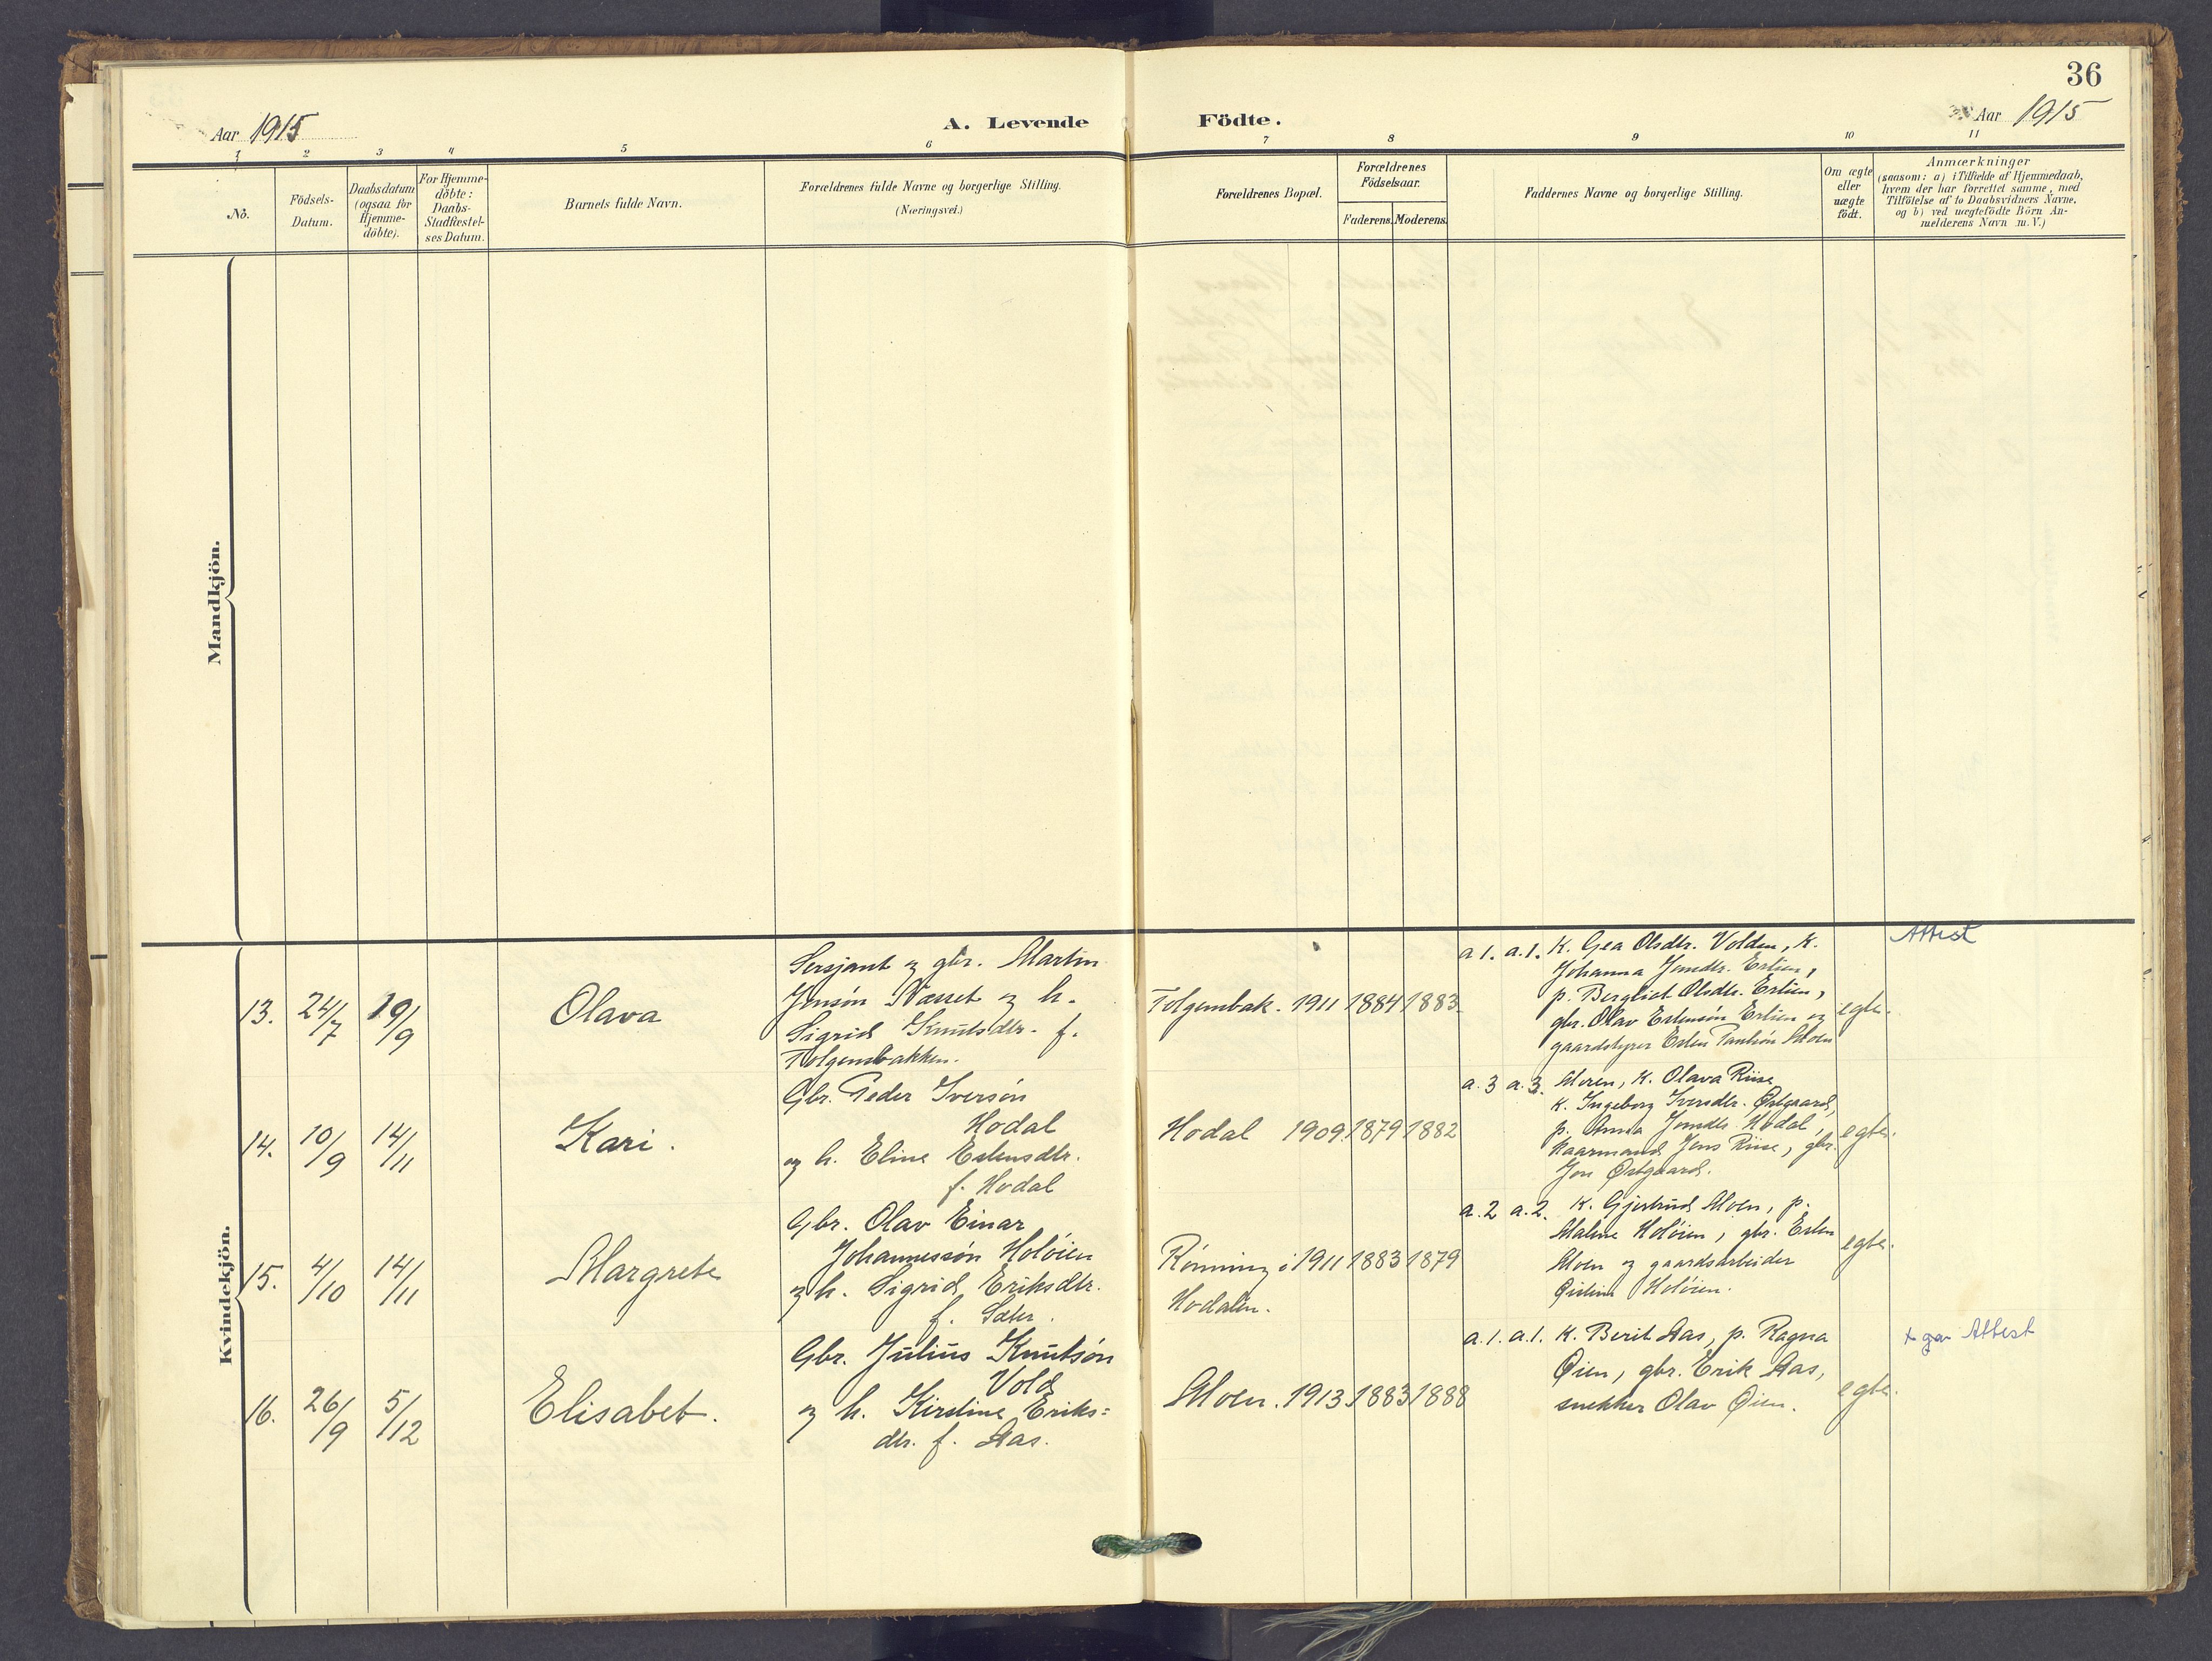 36
Aar 1915
A. Levende Födte.
Aar 1915
1 2 3 4 5 6 7 8 9 10 11
No.
Födsels-
Datum.
Daabsdatum
(ogsaa for
Hjemme-
döbte).
For Hjemme-
döbte:
Daabs-
Stadfæstel-
ses Datum.
Barnets fulde Navn.
Forældrenes fulde Navne og borgerlige Stilling.
(Næringsvei.)
Forældrenes Bopæl.
Forældrenes
Födselsaar.
Faderens. Moderens.
Faddernes Navne og borgerlige Stilling.
Om ægte
eller
uægte
födt.
Anmærkninger
(saasom: a) i Tilfælde af Hjemmedaab,
hvem der har forrettet samme, med
Tilföielse af to Daabsvidners Navne,
og b) ved uægtefödte Börn An-
melderens Navn m.V.)
Mandkjön.
Kvindekjön.
13. 24/7 19/9
Olava
Sersjant og gbr. Martin
Jonsón Næsset og h.
Sigrid Knutsdtr. f.
Tolgensbakken.
Tolgensbak. 1911 1884 1883.
a 1. a.1. K. Gea Olsdtr. Volden, K.
Johanna Jonsdtr. Erlien,
p. Bergliot Olsdtr. Erlien,
gbr. Olav Estensón Erlien og
gaardstyrer Esten Moen
egte.
Attest
14. 10/9 14/11
Kari.
Gbr. Peder Iversón
Hodal
og h. Eline Estensdtr.
f. Hodal
Hodal 1909. 1879 1882
a.3 a.3. Moren, K. Olava Riise
K. Ingeborg Iversdtr. Østgaard,
p. Anna Jonsdtr. Hodal,
kaarmand Jens Riise, gbr.
Jon Østgaard.
egte.
15. 4/10 14/11
Margrete
Gbr. Olav Einar
Johannessón Holóien
og h. Sigrid Eriksdtr.
f. Sæter.
Rónning i 1911 1883 1879
Hodalen.
a.2 a.2. K. Gjertrud Moen, p.
Malene Holóien, gbr. Esten
Moen og gaardsarbeider
Holóien.
egte.
16. 26/9 5/12
Elisabet.
Gbr. Julius Knutsón
Vold
og h. Kirstine Eriks=
dtr. f. Aas.
Moen. 1913. 1883 1888
a.1. a.1. K. Berit Aas, p. Ragna
Øien, gbr. Erik Aas,
snekker Olav Øien.
egte.
Attest